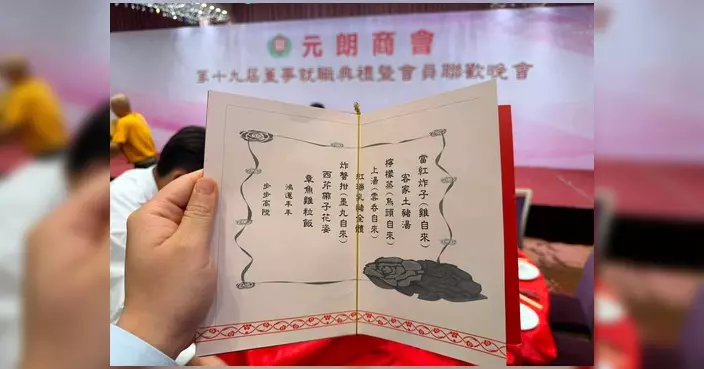 元朗商會
第十九屆董事就職典禮暨會員聯歡晚會
當紅炸子(雞自來)
客家土豬湯
檸檬蒸(烏頭自來)
上湯(雲吞自來)
乳豬全體
炸蟹拑(墨丸自來)
西芹帶子花姿
章魚雞粒飯
鴻運年年
步步高陞